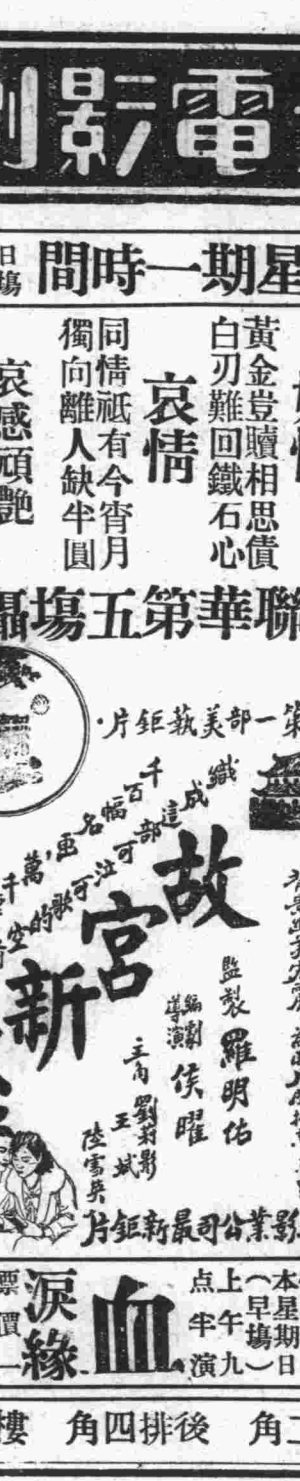 電影
星期一時間
黃金豈贖相思債
白刃難回鐵石心
哀情
同情祇有今宵月
獨向離人缺半圓
哀感頑艷
聯華第五場
第一部美執鉅片
織成這部可泣可歌的
千百幅名畫，萬
故宮新
監製 羅明佑
編劇導演 侯曜
主角 劉莉影
王斌
陸雪英
影業公司最新鉅片
本星期日
（早場）
上午九
点半演
血
淚緣
票價一
角 後排四角 樓